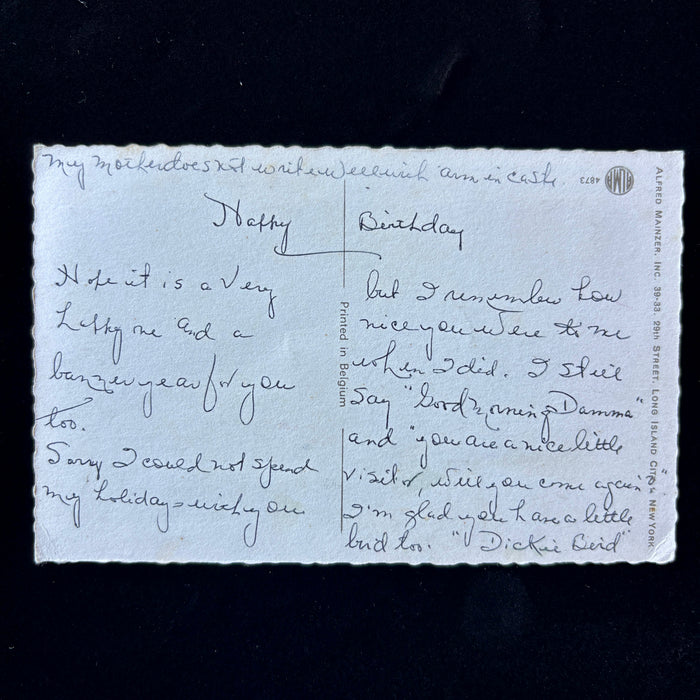 My mother does not write well with arm in caste.
Happy Birthday
Hope it is a very
happy one and a
banner year for you
too.
Sorry I could not spend
my holiday = with you
but I remember how
nice you were to me
when I did. I still
say "Good Morning Damma"
and "you are a nice little
visitor, will you come again"?
I'm glad you have a little
bird too. "Dickie Bird"
Printed in Belgium
ALFRED MAINZER, INC. 39-33, 29th STREET, LONG ISLAND CITY 4 NEW YORK
4873